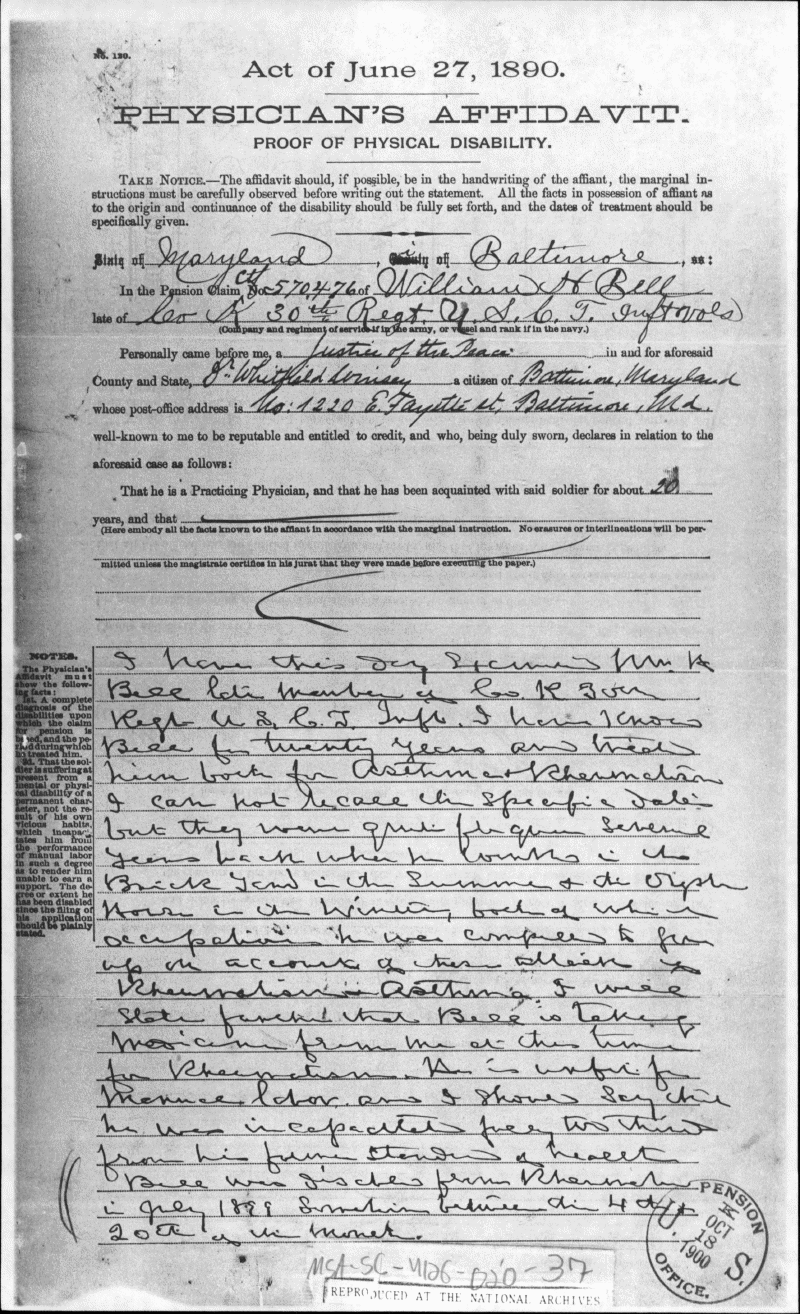 No. 130.
Act of June 27, 1890.
PHYSICIAN'S AFFIDAVIT.
PROOF OF PHYSICAL DISABILITY.
TAKE NOTICE.—The affidavit should, if possible, be in the handwriting of the affiant, the marginal in-
structions must be carefully observed before writing out the statement. All the facts in possession of affiant as
to the origin and continuance of the disability should be fully set forth, and the dates of treatment should be
specifically given.
State of Maryland, City of Baltimore, ss:
In the Pension Claim No. 570476 of William H Bell
late of Co K 30th Regt U. S. C. T. Inft Vols
(Company and regiment of service if in the army, or vessel and rank if in the navy.)
Personally came before me, a Justice of the Peace in and for aforesaid
County and State, Dr Whitfield Winsey a citizen of Baltimore, Maryland
whose post-office address is No: 1220 E. Fayette st, Baltimore, Md.
well-known to me to be reputable and entitled to credit, and who, being duly sworn, declares in relation to the
aforesaid case as follows:
That he is a Practicing Physician, and that he has been acquainted with said soldier for about 20
years, and that
(Here embody all the facts known to the affiant in accordance with the marginal instruction. No erasures or interlineations will be per-
mitted unless the magistrate certifies in his jurat that they were made before executing the paper.)
NOTES.
The Physician's
Affidavit must
show the follow-
ing facts:
1st. A complete
diagnosis of the
disabilities upon
which the claim
for pension is
based, and the pe-
riod during which
he treated him.
2d. That the sol-
dier is suffering at
present from a
mental or physi-
cal disability of a
permanent char-
acter, not the re-
sult of his own
vicious habits,
which incapac-
itates him from
the performance
of manual labor
in such a degree
as to render him
unable to earn a
support. The de-
gree or extent he
has been disabled
since the filing of
his application
should be plainly
stated.
I have this day Examined Wm. H
Bell late member of Co. K 30th
Regt U S. C. T. Inft. I have known
Bell for twenty years and treated
him both for Asthma & Rheumatism
I can not recall the specific dates
but they were quite frequent several
years back when he worked in the
Brick Yard in the Summer & the Oyster
House in the Winter, both of which
occupations he was compelled to give
up on account of these attacks of
Rheumatism & Asthma. I will
state further that Bell is taking
medicine from me at this time
for Rheumatism. He is unfit for
manual labor and I should say that
he was incapacitated fully two thirds
from his former standard of health
Bell was from Rheumatism
in July 1899 Sometime between the 4th &
20th of the month.
U. S. PENSION OFFICE.
OCT
18
1900
MSA-SC-4126-020-37
REPRODUCED AT THE NATIONAL ARCHIVES